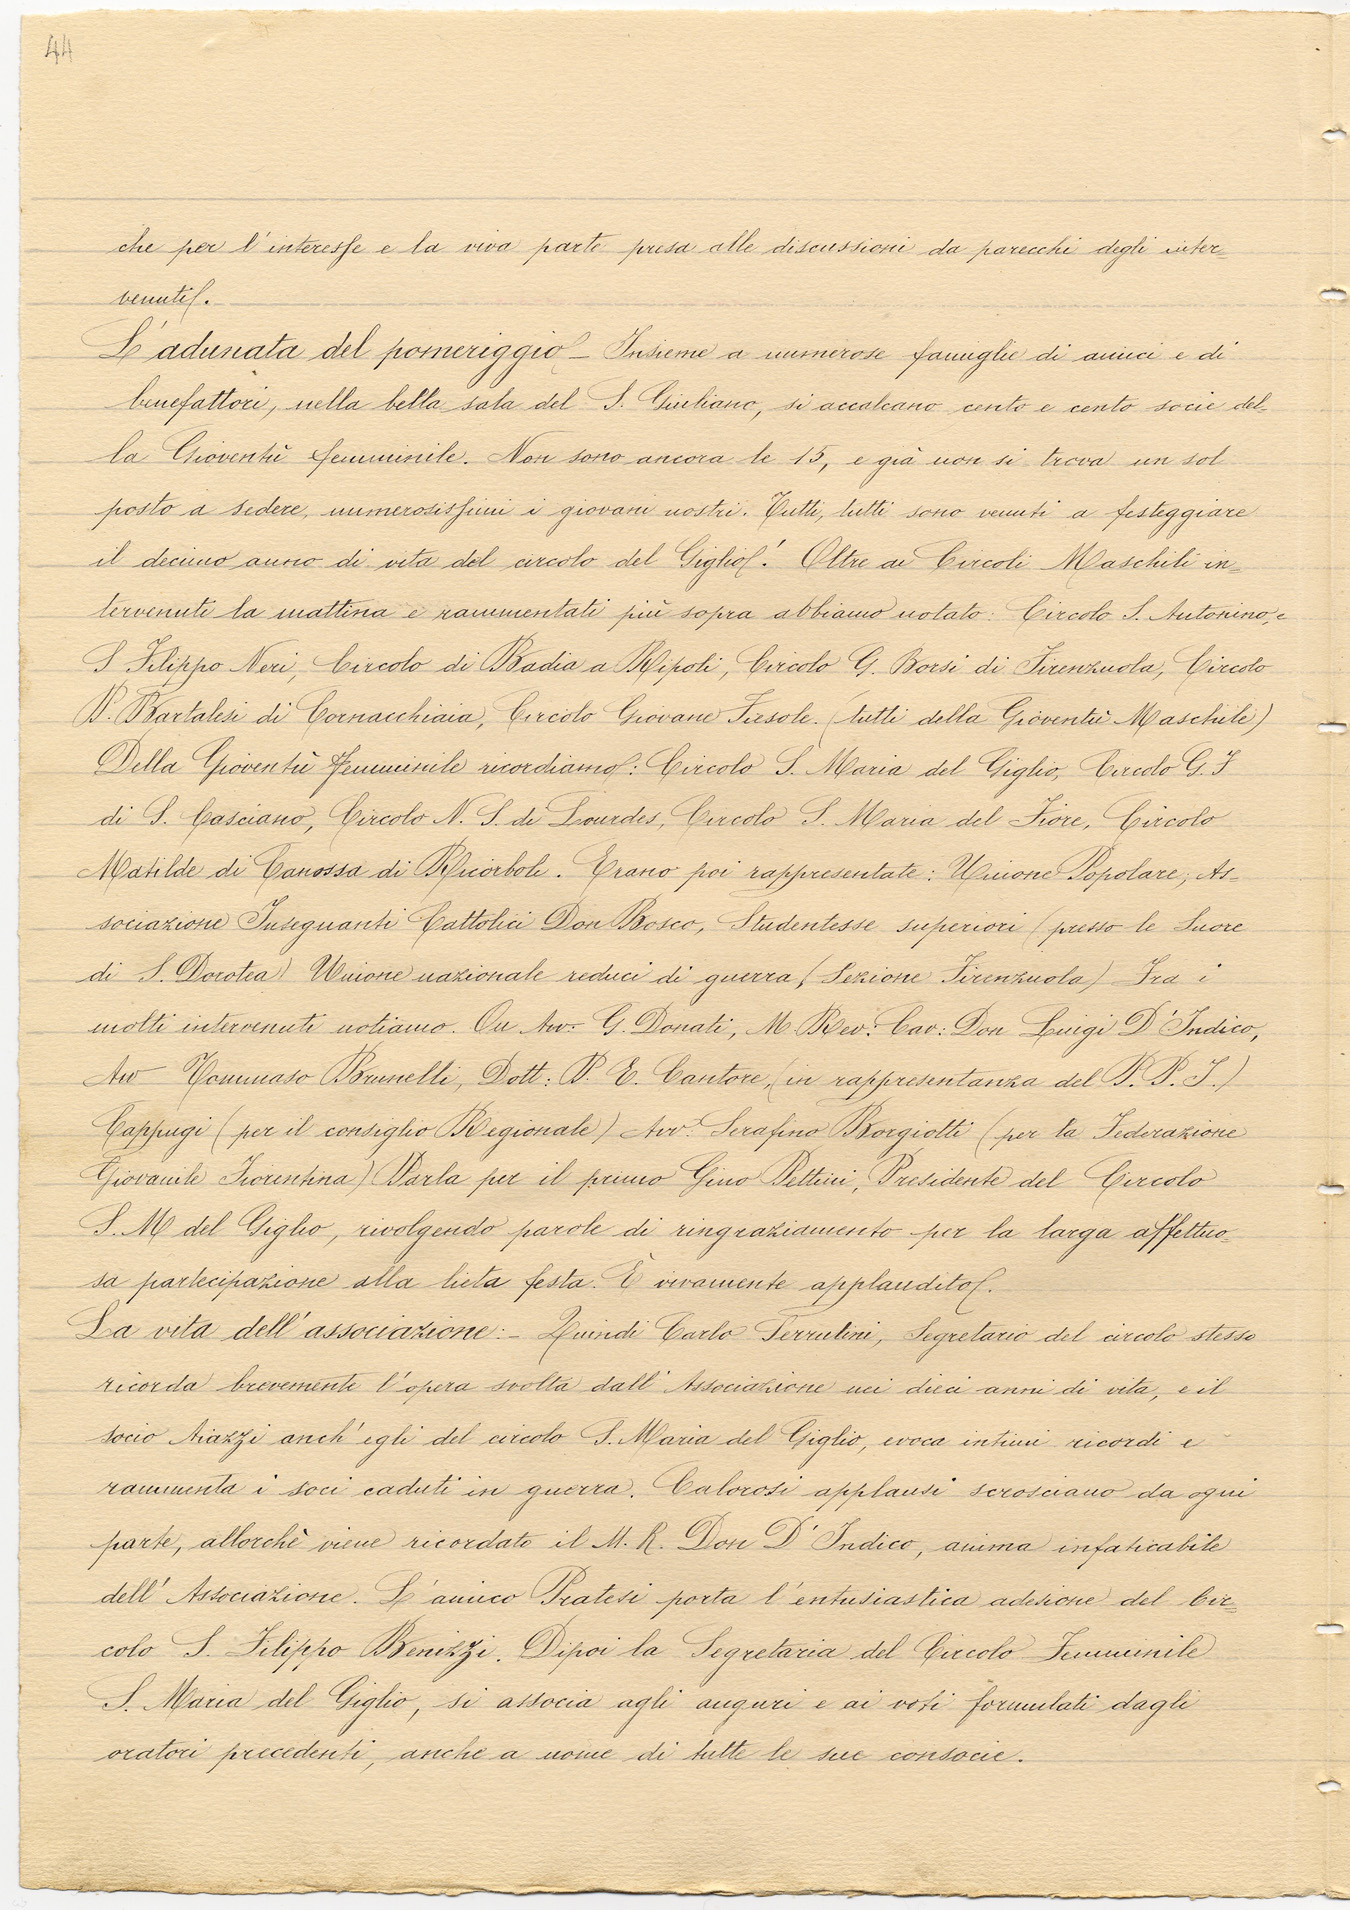 44
che per l'interesse e la viva parte presa alle discussioni da parecchi degli inter=
venuti.
L'adunata del pomeriggio – Insieme a numerose famiglie di amici e di
benefattori, nella bella sala del S. Giuliano, si accalcano cento e cento socie del=
la Gioventù femminile. Non sono ancora le 15, e già non si trova un sol
posto a sedere, numerosissimi i giovani nostri. Tutti, tutti sono venuti a festeggiare
il decimo anno di vita del circolo del Giglio! Oltre ai Circoli Maschili in=
tervenuti la mattina e rammentati più sopra abbiamo notato: Circolo S. Antonino, e
S Filippo Neri, Circolo di Badia a Ripoli, Circolo G. Borsi di Firenzuola, Circolo
P. Bartalesi di Cornacchiaia, Circolo Giovane Fiesole. (tutti della Gioventù Maschile)
Della Gioventù Femminile ricordiamo: Circolo S. Maria del Giglio, Circolo G. F
di S. Casciano, Circolo N. S. di Lourdes, Circolo S. Maria del Fiore, Circolo
Matilde di Canossa di Ricorboli. Erano poi rappresentate: Unione Popolare, As=
sociazione Insegnanti Cattolici Don Bosco, Studentesse superiori (presso le Suore
di S. Dorotea) Unione nazionale reduci di guerra, (Sezione Firenzuola) Fra i
molti intervenuti notiamo. On Avv: G. Donati, M. Rev: Cav: Don Luigi D'Indico,
Avv Tommaso Brunelli, Dott: P. E. Cantore, (in rappresentanza del P. P. I.)
Cappugi (per il consiglio Regionale) Avv: Serafino Borgiotti (per la Federazione
Giovanile Fiorentina) Parla per il primo Gino Pettini, Presidente del Circolo
S. M del Giglio, rivolgendo parole di ringraziamento per la larga affettuo=
sa partecipazione alla lieta festa. È vivamente applaudito.
La vita dell'associazione:– Quindi Carlo Ferrulini, Segretario del circolo stesso
ricorda brevemente l'opera svolta dall'Associazione nei dieci anni di vita, e il
socio Aiazzi anch'egli del circolo S. Maria del Giglio, evoca intimi ricordi e
rammenta i soci caduti in guerra. Calorosi applausi scrosciano da ogni
parte, allorchè viene ricordato il M. R. Don D'Indico, anima infaticabile
dell'Associazione. L'amico Pratesi porta l'entusiastica adesione del Cir=
colo S. Filippo Benizzi. Dipoi la Segretaria del Circolo Femminile
S. Maria del Giglio, si associa agli auguri e ai voti formulati dagli
oratori precedenti, anche a nome di tutte le sue consocie.